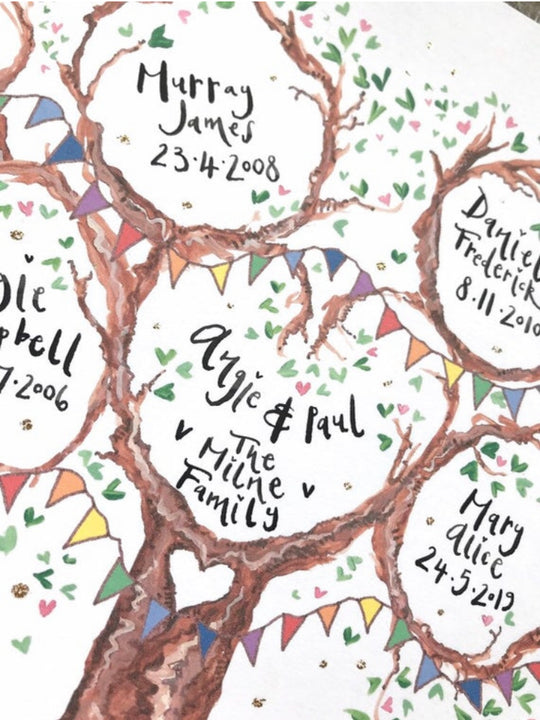 Murray
James
23·4·2008
Daniel
Frederick
8·11·2010
Angie & Paul
The
Milne
Family
Mary
Alice
24·5·2019